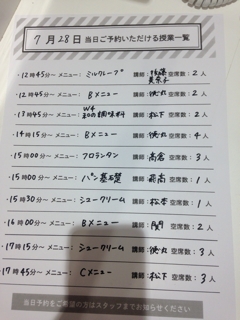 7月28日 当日ご予約いただける授業一覧
・12時45分~ メニュー: ミルクレープ 講師: 後藤 英奈子 空席数: 2人
・12時45分~ メニュー: Bメニュー 講師: 徳丸 空席数: 2人
・13時45分~ メニュー: W4 和の調味料 講師: 松下 空席数: 2人
・14時15分~ メニュー: Bメニュー 講師: 徳丸 空席数: 4人
・15時00分~ メニュー: フロランタン 講師: 高倉 空席数: 3人
・15時00分~ メニュー: パン基礎 講師: 空席数: 3人
・15時30分~ メニュー: シュークリーム 講師: 松本 空席数: 1人
・16時00分~ メニュー: Bメニュー 講師: 関 空席数: 2人
・17時15分~ メニュー: シュークリーム 講師: 徳丸 空席数: 3人
・17時45分~ メニュー: Cメニュー 講師: 松下 空席数: 3人
当日予約をご希望の方はスタッフまでお知らせください